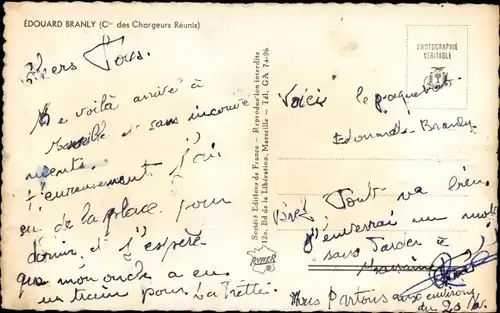 ÉDOUARD BRANLY (Cie des Chargeurs Réunis)
Chers Tous.
Me voilà arrivé à
Marseille et sans inconvé
nients.
heureusement j'ai
eu de la place pour
dormir et j'espère
que mon oncle a eu
un train pour
Société Editions de France - Reproduction interdite
120, Bd de la Libération, Marseille - Tél. GA 74-96
PHOTOGRAPHIE
VÉRITABLE
Voici le paquebot
Edouard-Branly.
Bref Tout va bien
J'enverrai un mot
sans tarder à
Nous partons aux environs
du 20